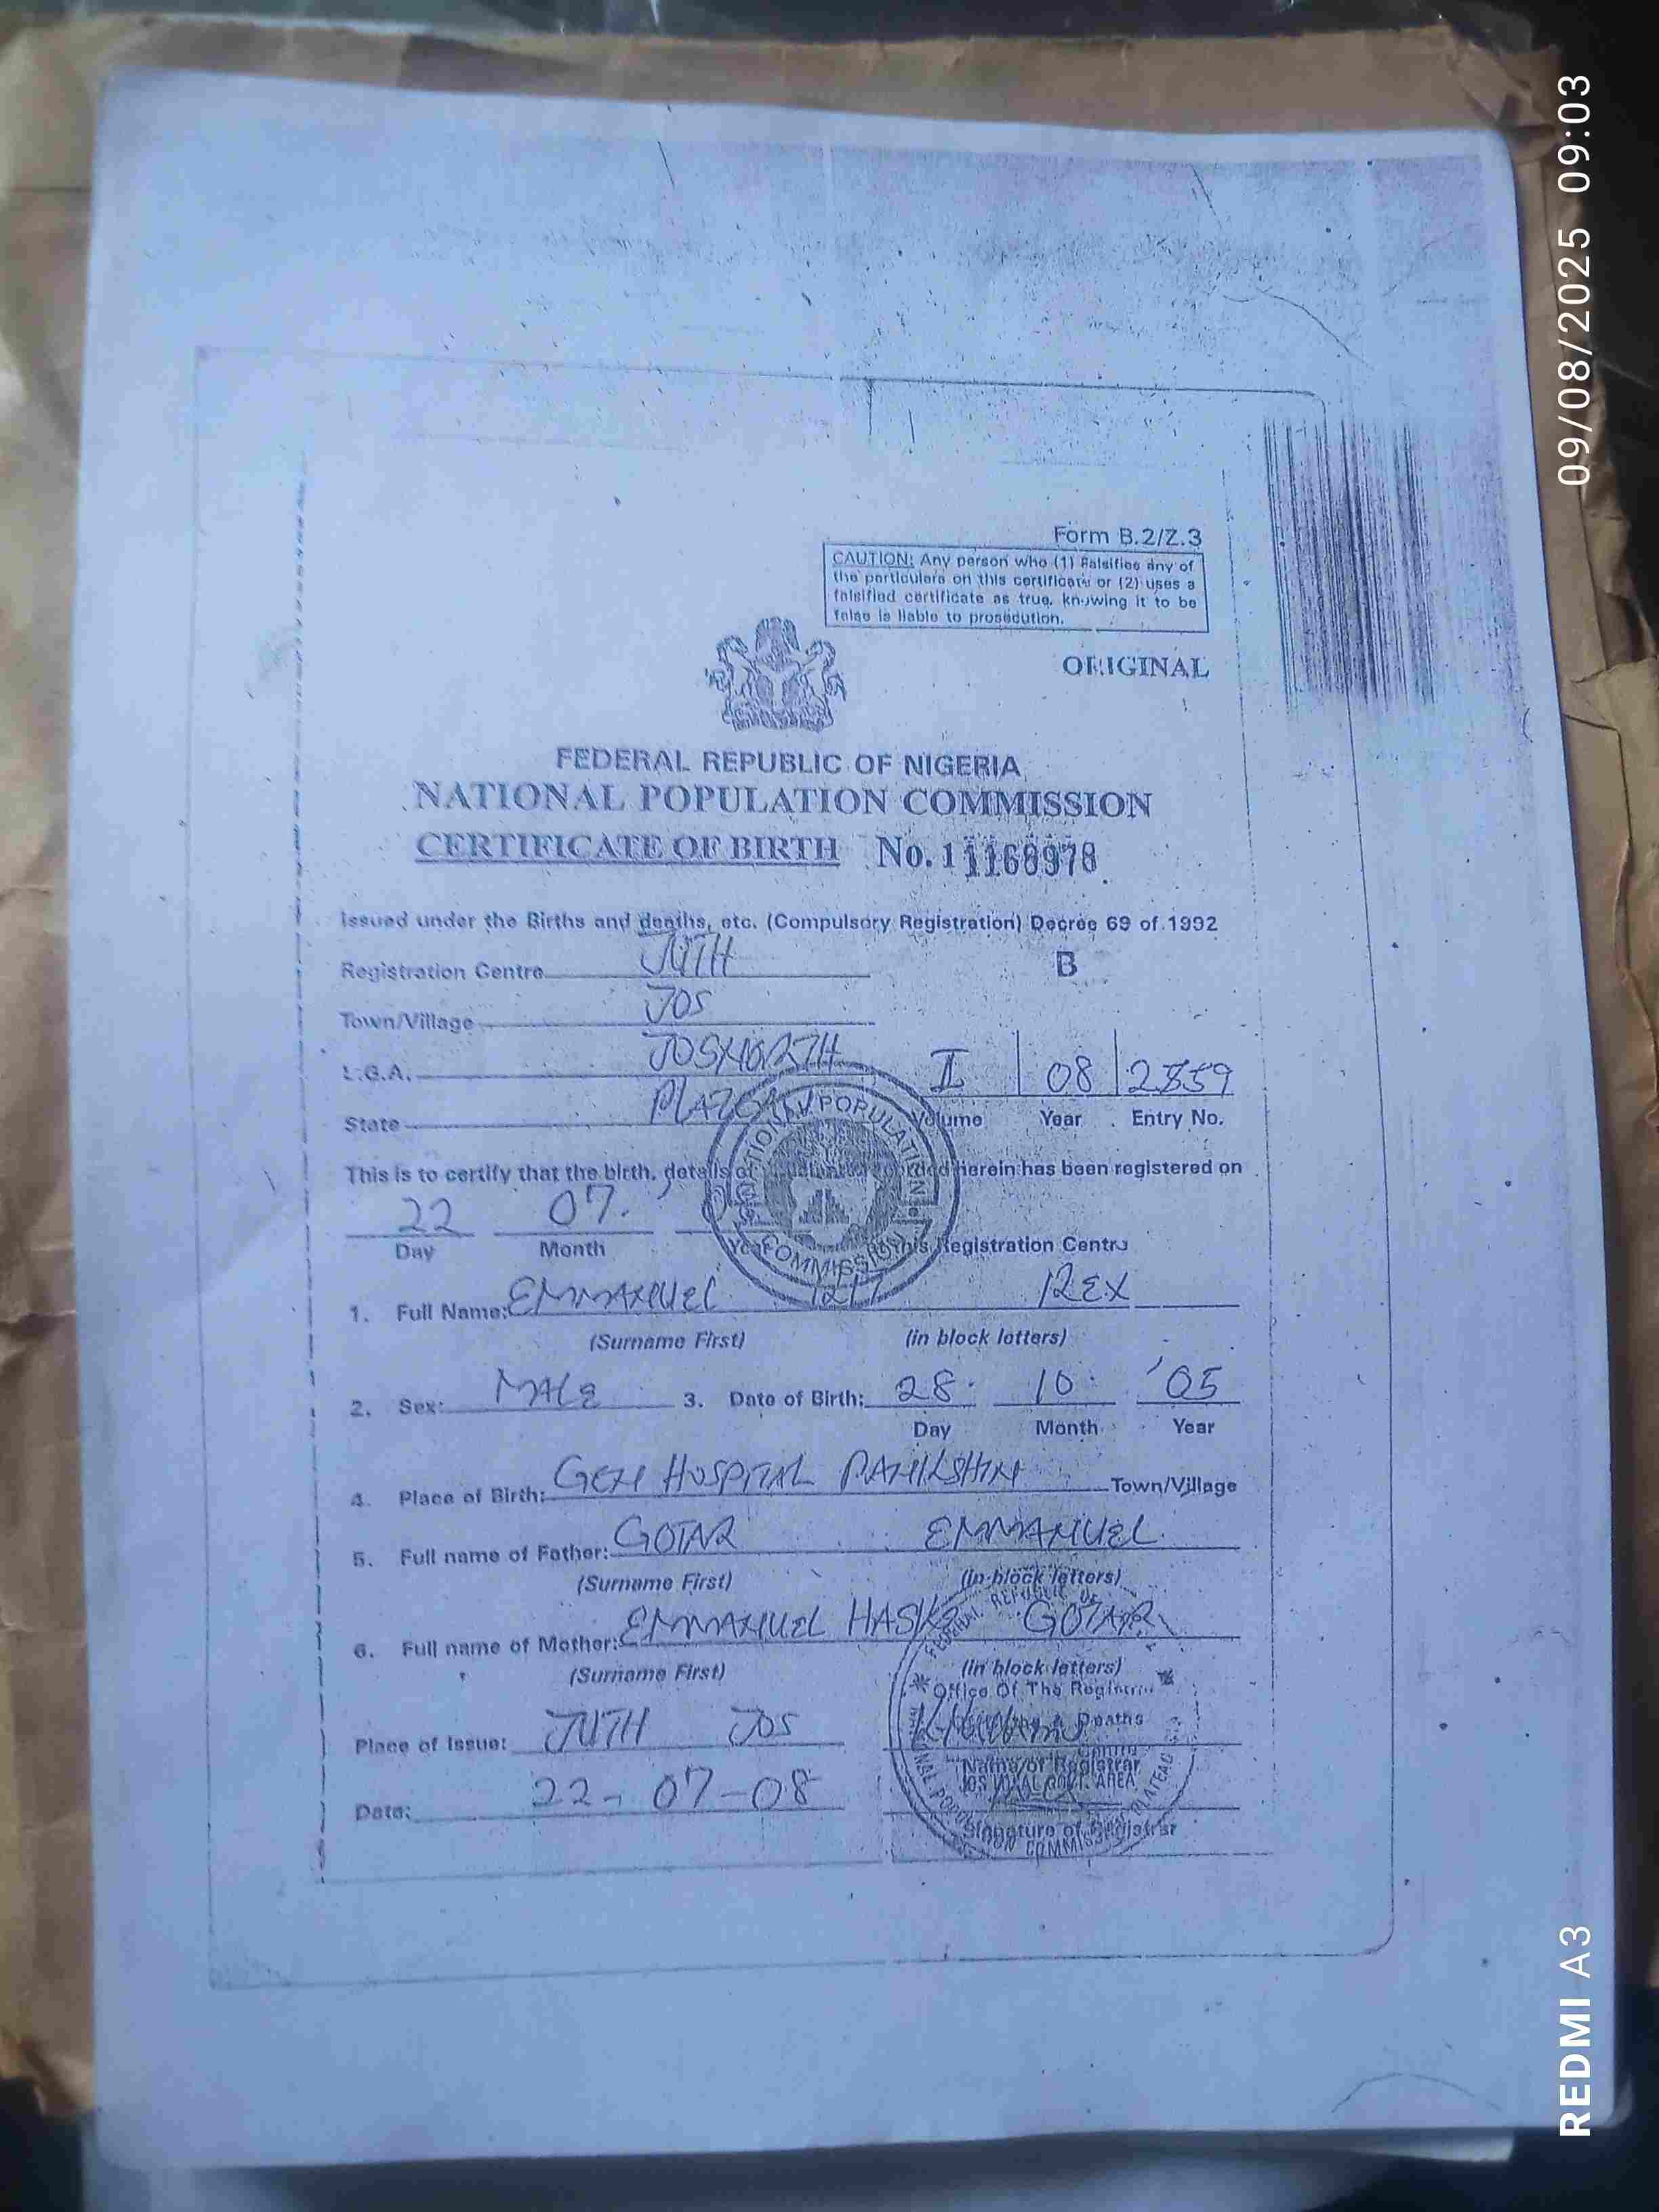 Form B.2/Z.3
CAUTION: Any person who (1) Falsifies any of
the particulars on this certificate or (2) uses a
falsified certificate as true, knowing it to be
false is liable to prosecution.
ORIGINAL
FEDERAL REPUBLIC OF NIGERIA
NATIONAL POPULATION COMMISSION
CERTIFICATE OF BIRTH No.
Issued under the Births and deaths, etc. (Compulsory Registration) Decree 69 of 1992
Registration Centre JUTH B
Town/Village JOS
L.G.A. JOS NORTH I 08
State Volume Year Entry No.
This is to certify that the birth, details of herein has been registered on
22 07.
Day Month Year Registration Centre
1. Full Name: EMMANUEL REX
(Surname First) (in block letters)
2. Sex: MALE 3. Date of Birth: 28 10 '05
Day Month Year
4. Place of Birth: GEN HOSPITAL PANKSHIN Town/Village
5. Full name of Father: GOTAR EMMANUEL
(Surname First) (in block letters)
6. Full name of Mother: EMMANUEL GOTAR
(Surname First) (in block letters)
Office Of The Registrar
Deaths
Place of Issue: JUTH JOS
Name of Registrar
Date: 22-07-08
Signature of Registrar
NATIONAL POPULATION COMMISSION
09/08/2025 09:03
REDMI A3